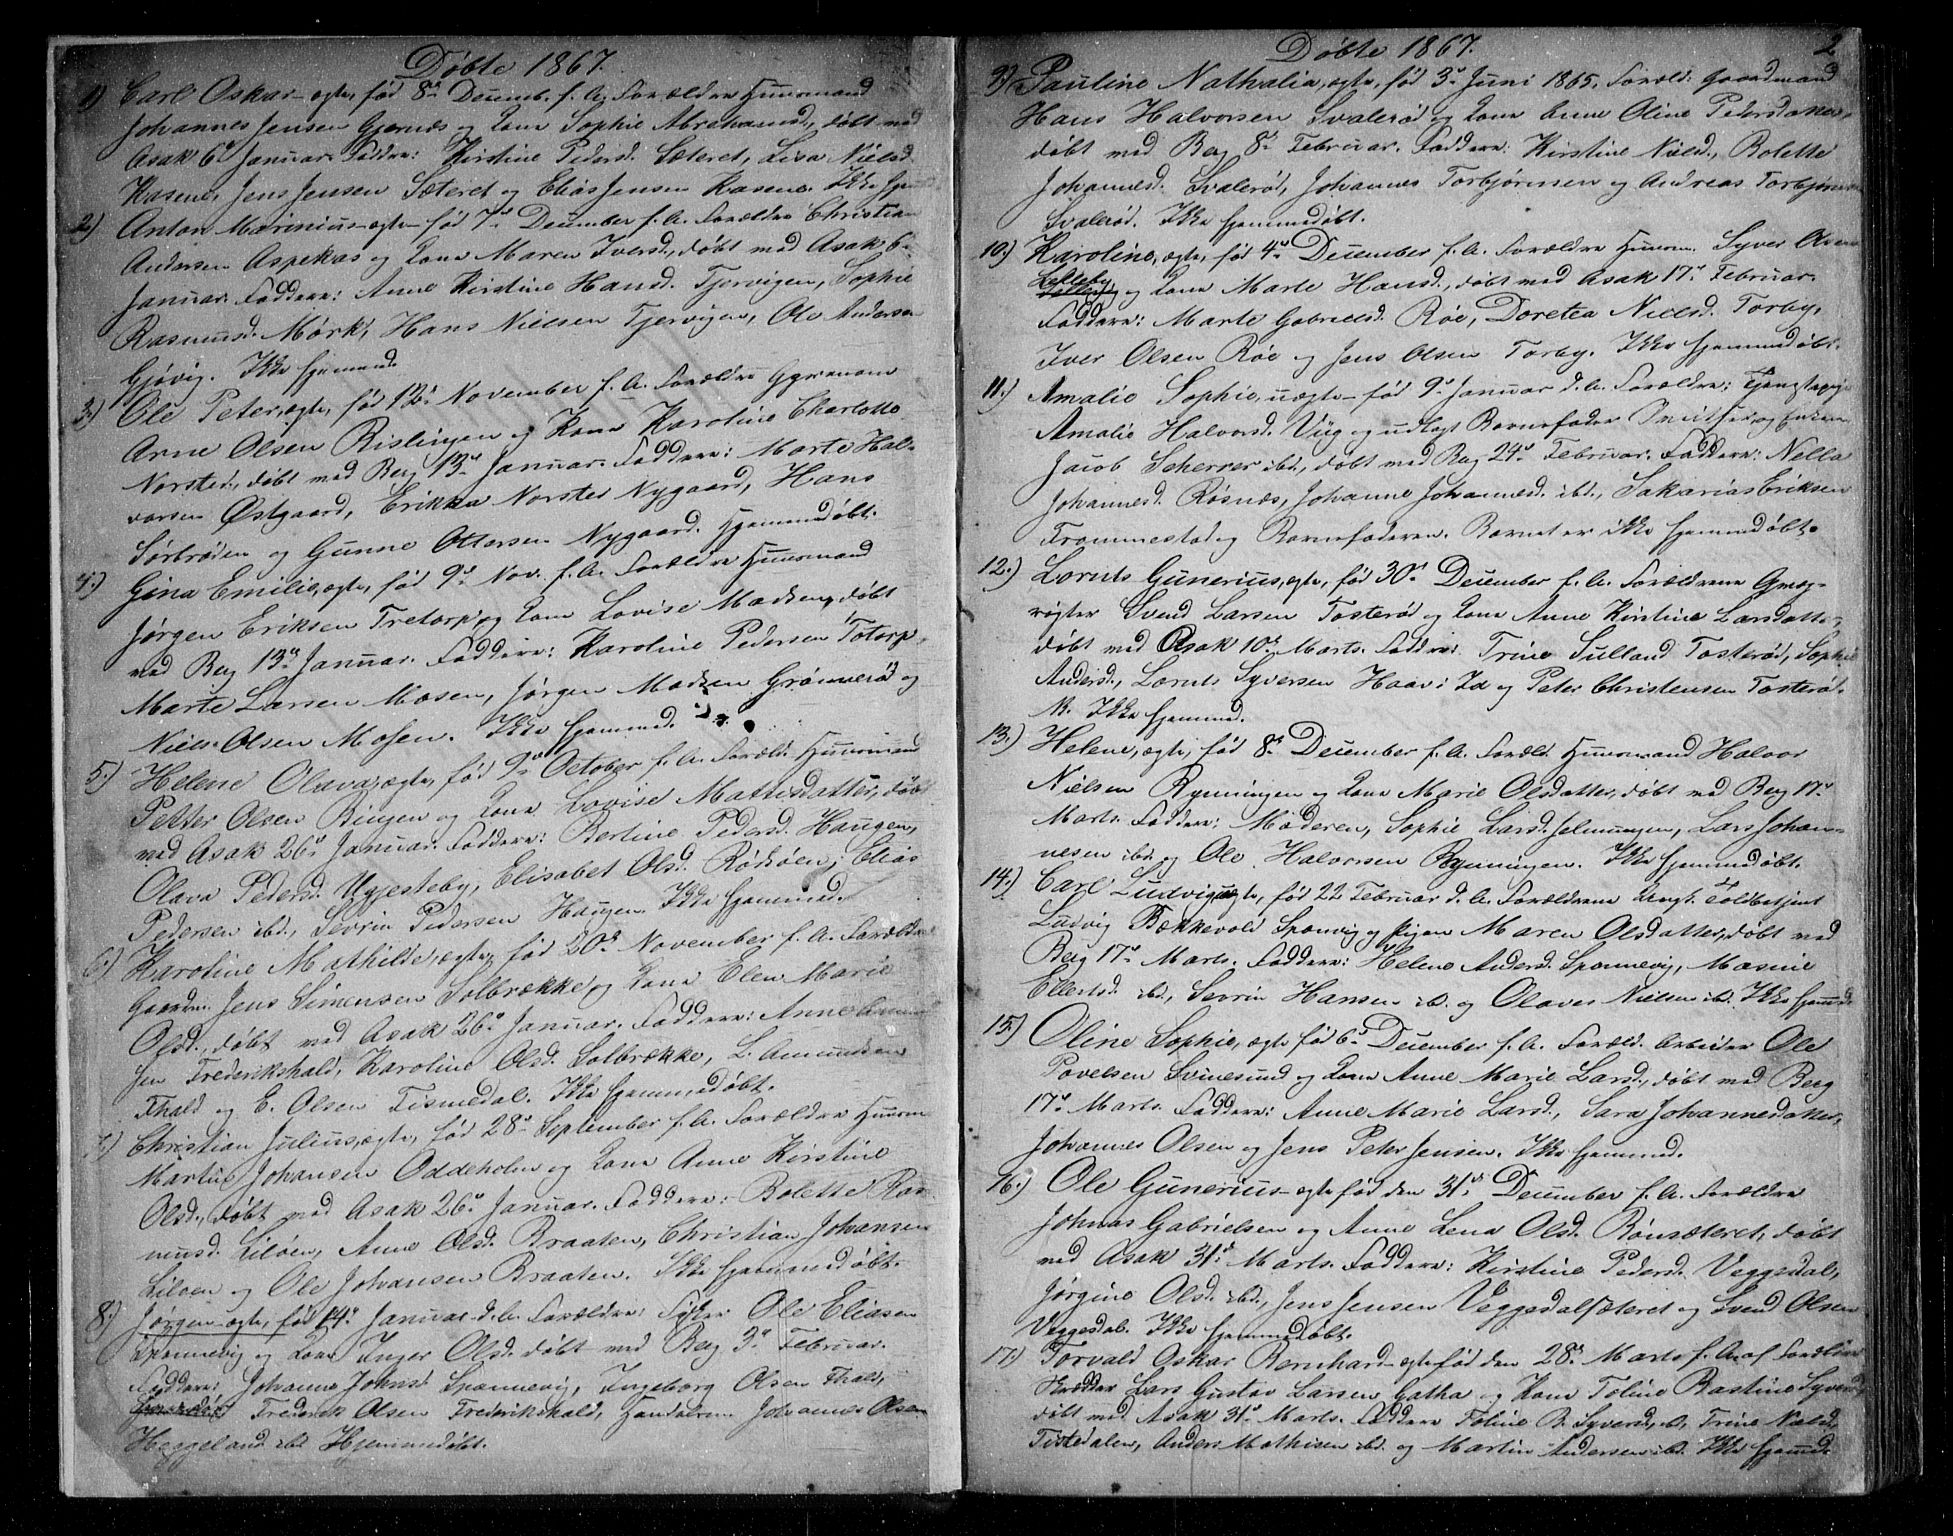 Døbte 1867.
1) Carl Oskar ægte, født 8de Decemb. f. A. Forældre Huusmand
Johannes Jensen Gjernæs og Kone Sophie Abrahamsd., døbt ved
Asak 6te Januar. Faddere: Kirstine Pedersd. Sæteret, Lisa Nielsd.
Kasene, Jens Jensen Sæteret og Elias Jensen Kasene. Ikke hjemmed.
2) Anton Marinius ægte født 7de December f. A. Forældre Christian
Andersen Aspekas og Kone Maren Iversd., døbt ved Asak 6te
Januar. Faddere: Anne Kirstine Hansd. Tjervigen, Sophie
Rasmusd. Mørk, Hans Nielsen Tjervigen, Ole Andersen
Gjøvig. Ikke hjemmed.
3.) Ole Peter, ægte, født 13de November f. A. Forældre
Arne Olsen Rislingen og Kone Karoline Charlotte
Norsted, døbt ved Berg 13de Januar. Faddere: Marte Hal-
vorsen Østgaard, Erikka Norsted Nygaard, Hans
Sørbrøden og Gunne Ottersen Nygaard. Hjemmedøbt.
4.) Gina Emilie, ægte, født 9de Nov. f. A. Forældre Huusmand
Jørgen Eriksen Tretorp og Kone Lovise Madsen, døbt
ved Berg 13de Januar. Faddere: Karoline Pedersen Totorp,
Marte Larsen Mosen, Jørgen Madsen Grønnerød og
Niels Olsen Mosen. Ikke hjemmed.
5.) Helene Olava, ægte, født 9de October f. A. Foræld. Huusmand
Petter Olsen Bingen og Kone Lovise Mattisdatter, døbt
ved Asak 26de Januar. Faddere: Bertine Pedersd. Haugen,
Olava Pedersd. Ugjesteby, Elisabet Olsd. Rødsøen, Elias
Pedersen ibd., Sevrin Pedersen Haugen. Ikke hjemmed.
6.) Karoline Mathilde, ægte, født 20de November f. A. Forældre
Gaardm. Jens Simensen Solbrække og Kone Elen Marie
Olsd., døbt ved Asak 26de Januar. Faddere: Anne
sen Frederikshald, Karoline Olsd. Solbrække, L. Amundsen
Fhald og E. Olsen Tismedal. Ikke hjemmedøbt.
7.) Christian Julius, ægte, født 28de September f. A. Forældre Huusm.
Martin Johansen Oddeholm og Kone Anne Kirstine
Olsd., døbt ved Asak 26de Januar. Faddere: Bolette Ras-
musd. Liløen, Anne Olsd. Braaten, Christian Johansen
Liløen og Ole Johansen Braaten. Ikke hjemmedøbt.
8.) Jørgen ægte, født 14de Januar d. A. Forældre: Ole Eliasen
Sponnevig og Kone Inger Olsd. døbt ved Berg 3de Februar.
Faddere: Johanne Johnsd. Sponnevig, Ingeborg Olsen Fhald,
Frederik Olsen Frederikshald, Handelsm. Johannes Olsen
Heggeland ibd. Hjemmedøbt.
Døbte 1867. 2
9.) Pauline Nathalia, ægte, født 3de Juni 1865, Foræld. Gaardmand
Hans Halvorsen Svalerød og Kone Anne Oline Pedersdatter,
døbt ved Berg 8de Februar. Faddere: Kirstine Nielsd., Bolette
Johannesd. Svalerød, Johannes Torbjørnsen og Andreas Torbjørnsen
Svalerød. Ikke hjemmedøbt.
10.) Karoline, ægte, født 4de December f. A. Forældre Huusm. Syver
Lilleby og Kone Marte Hansd., døbt ved Asak 17de Februar.
Faddere: Marte Gabrielsd. Røe, Doretea Nielsd. Torby,
Iver Olsen Røe og Jens Olsen Torby. Ikke hjemmedøbt.
11.) Amalie Sophie, uægte født 9de Januar d. A. Forældre: Tjenstepige
Amalie Halvorsd. Viig og udlagt Barnefader og Enkem.
Jacob Scherrer ibd., døbt ved Berg 24de Februar. Faddere: Nella
Johannesd. Røsnæs, Johanne Johannesd. ibd., Sakarias Eriksen
Trommestad og Barnefaderen. Barnet er ikke hjemmedøbt.
12.) Lornts Gunerius, ægte, født 30te December f. A. Forældrene
røgter Svend Larsen Tosterød og Kone Anne Kirstine Larsdatter,
døbt ved Asak 10de Marts. Faddere: Trine Sulland Tosterød, Sophie
Andersd., Lornts Syversen Haav i Id og Peter Christensen Tosterød.
Ikke hjemmed.
13.) Helene, ægte, født 8de December f. A. Foræld. Huusmand Halvor
Nielsen Rynningen og Kone Marie Olsdatter, døbt ved Berg 17de
Marts. Faddere: Moderen, Sophie Larsd. Holmungen, Lars Johan-
nesen ibd. og Ole Halvorsen Rynningen. Ikke hjemmedøbt.
14.) Carl Ludvig uægte, født 22 Februar d. A. Forældrene Ungk. Toldbetjent
Ludvig Bækkevold Sponvig og Pigen Maren Olsdatter, døbt ved
Berg 17de Marts. Faddere: Helene Andersd. Sponnevig, Masine
Ellertsd. ibd., Sevrin Hansen ibd. og Olaves Nielsen ibd. Ikke hjemmed.
15.) Oline Sophie, ægte født 6te December f. A. Foræld. Arbeider Ole
Povelsen Svinesund og Kone Anne Marie Larsd., døbt ved Berg
17de Marts. Faddere: Anne Marie Larsd., Sara Johannesdatter,
Johannes Olsen og Jens Peter Jensen. Ikke hjemmed.
16.) Ole Gunerius ægte født den 31te December f. A. Forældre
Johnas Gabrielsen og Anne Lena Olsd. Rønsæteret, døbt
ved Asak 31te Marts. Faddere: Kirstine Pedersd. Veggesdal,
Jørgine Olsd. ibd., Jens Jensen Veggedalsæteret og Svend Olsen
Veggesdal. Ikke hjemmedøbt.
17.) Torvald Oskar Bernhard ægte født den 28de Marts f. A. af Forældre
Lars Gustav Larsen Gatha og Kone Toline Bastine Syversd.
døbt ved Asak 31te Marts. Faddere Toline B. Syversd. ib., Trine Nielsd.
Tistedalen, Anders Mathisen ibd. og Martin Andersen ibd. Ikke hjemmed.